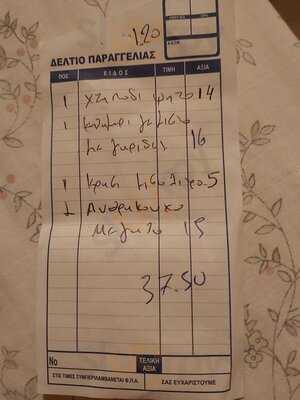 120
ΔΕΛΤΙΟ ΠΑΡΑΓΓΕΛΙΑΣ
ΠΟΣ. ΕΙΔΟΣ ΤΙΜΗ ΑΞΙΑ
1 χταπόδι ψητό 14
1 καλαμαρι γεμιστο
με γαριδες 16
1 Κρασι μισο λιτρο 5
1
37.50
Νο ΤΕΛΙΚΗ ΑΞΙΑ
ΣΤΙΣ ΤΙΜΕΣ ΣΥΜΠΕΡΙΛΑΜΒΑΝΕΤΑΙ Φ.Π.Α. ΣΑΣ ΕΥΧΑΡΙΣΤΟΥΜΕ